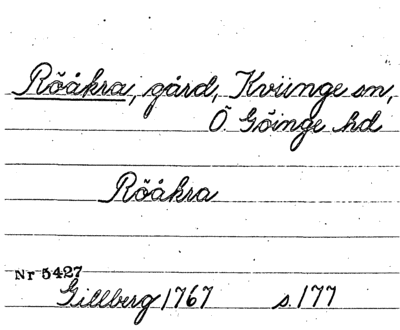 Röåkra, gård, Kviinge sn,
Ö. Göinge hd
Röåkra
Nr 5427
Gillberg 1767 s. 177